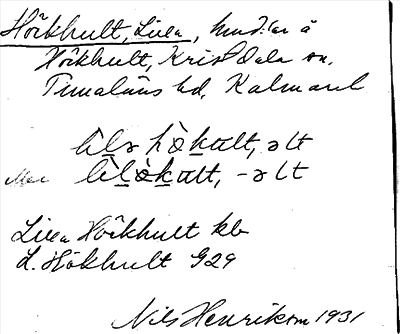 Hökhult, Lilla, hmd:ar å
Hökhult, Kristdala sn.
Tunaläns hd, Kalmar l
lìlə hö̀kɯlt, əlt
lìlö̀kɯlt, -əlt
Lilla Hökhult kb
L. Hökhult G29
Nils Henrikson 1931